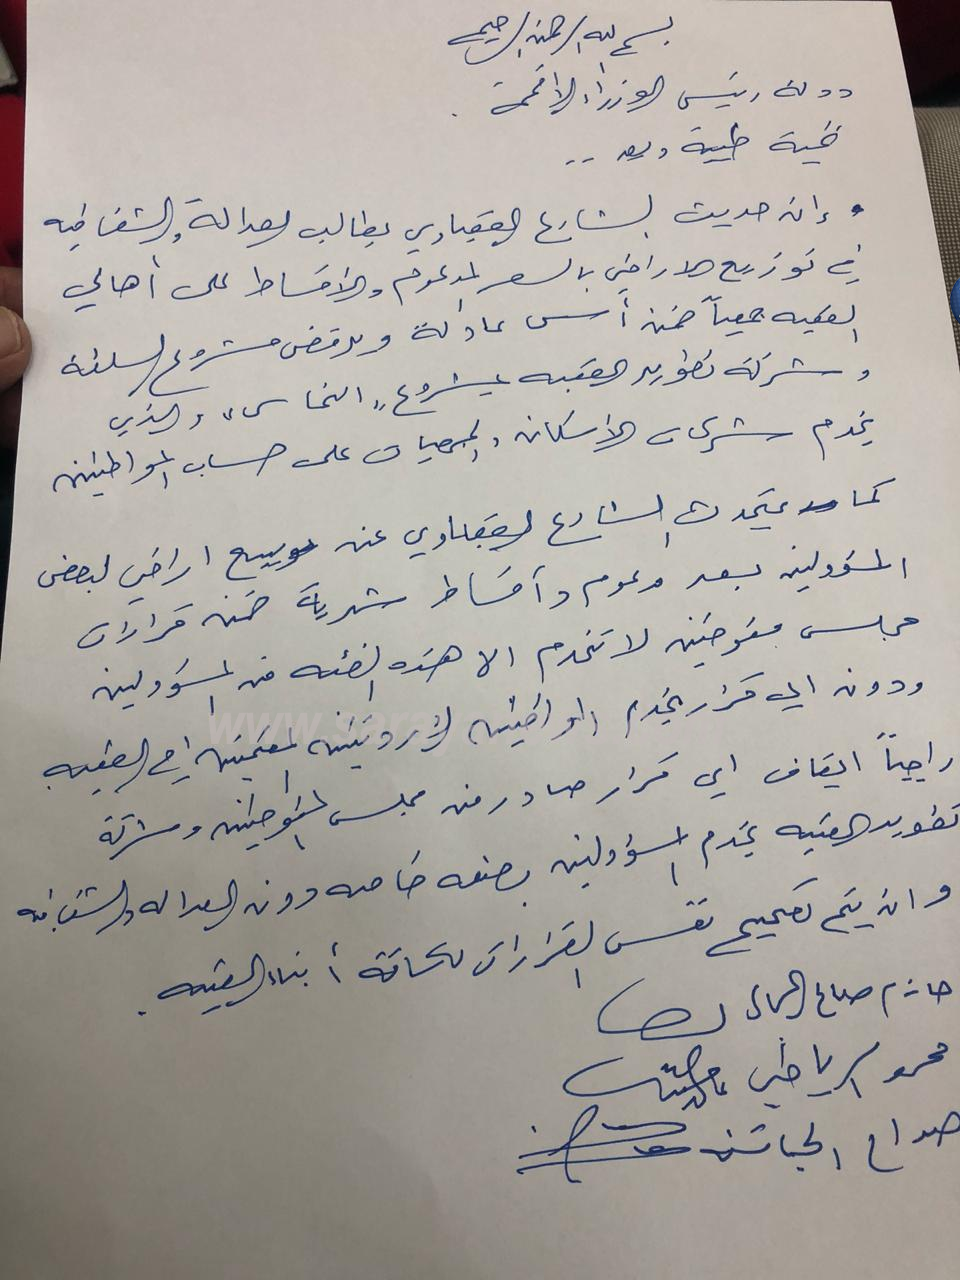 بسم الله الرحمن الرحيم
دولة رئيس الوزراء الأفخم
تحية طيبة وبعد ..
إن حديث الشارع العقباوي يطالب العدالة والشفافيه
في توزيع الاراضي بالسعر المدعوم والاقساط على أهالي
العقبه جميعاً ضمن أسس عادلة ويرفض مشروع السلطة
وشركة تطوير العقبه بمشروع " النخاسي " والذي
يخدم شركات الاسكان والجمعيات على حساب المواطنين
كما يتحدث الشارع العقباوي عن توزيع اراضي لبعض
المسؤولين بسعر مدعوم وأقساط شهرية ضمن قرارات
مجلس مفوضين لا تخدم الا هذه الفئه من المسؤولين
ودون اي قرار يخدم المواطنين الأردنيين المقيمين في العقبه
راجياً ايقاف اي قرار صادر من مجلس المفوضين وشركة
تطوير العقبه يخدم المسؤولين بصفه خاصه دون العداله والشفافيه
وان يتم تصحيح نفس القرارات لكافة أبناء العقبه .
حازم صالح المجالي
محمد الرياطي
صداح الحباشنة
www.saraya